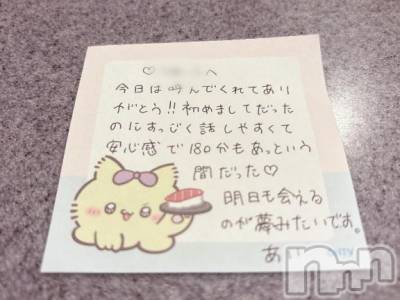 ♡ へ
今日は呼んでくれてあり
がとう!!初めましてだった
のにすっごく話しやすくて
安心感で180分もあっという
間だった♡
明日も会える
のが夢みたいです。
あ